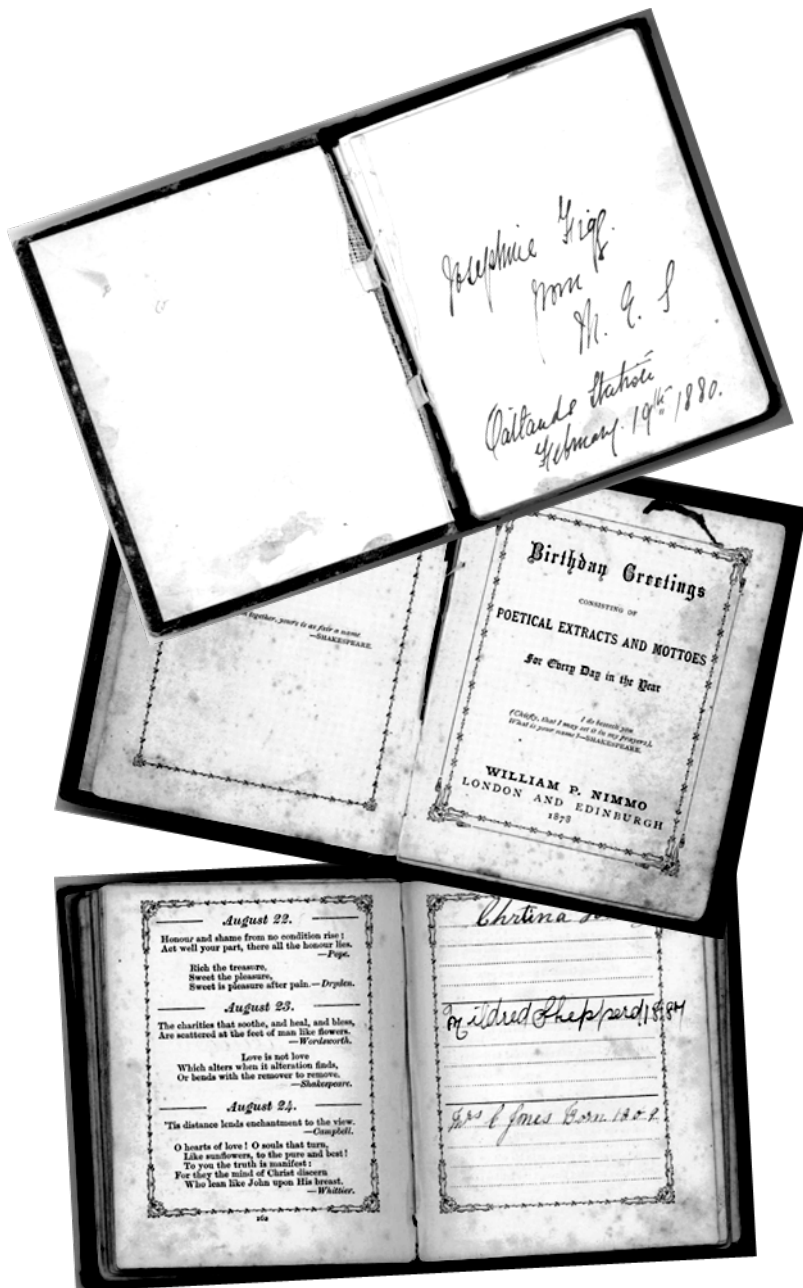 Josephine Figg.
from
M. E. S
Oatlands Station
February. 19th 1880.
together, yours is as fair a name
—SHAKESPEARE.
Birthday Greetings
CONSISTING OF
POETICAL EXTRACTS AND MOTTOES
For Every Day in the Year
I do beseech you
(Chiefly, that I may set it in my prayers),
What is your name?—SHAKESPEARE.
WILLIAM P. NIMMO
LONDON AND EDINBURGH
1878
August 22.
Honour and shame from no condition rise:
Act well your part, there all the honour lies.
—Pope.
Rich the treasure,
Sweet the pleasure,
Sweet is pleasure after pain.—Dryden.
August 23.
The charities that soothe, and heal, and bless,
Are scattered at the feet of man like flowers.
—Wordsworth.
Love is not love
Which alters when it alteration finds,
Or bends with the remover to remove.
—Shakespeare.
August 24.
'Tis distance lends enchantment to the view.
—Campbell.
O hearts of love! O souls that turn,
Like sunflowers, to the pure and best!
To you the truth is manifest:
For they the mind of Christ discern
Who lean like John upon His breast.
—Whittier.
162
Chrtina
Mildred Shepperd 1884
Mrs C Jones Born